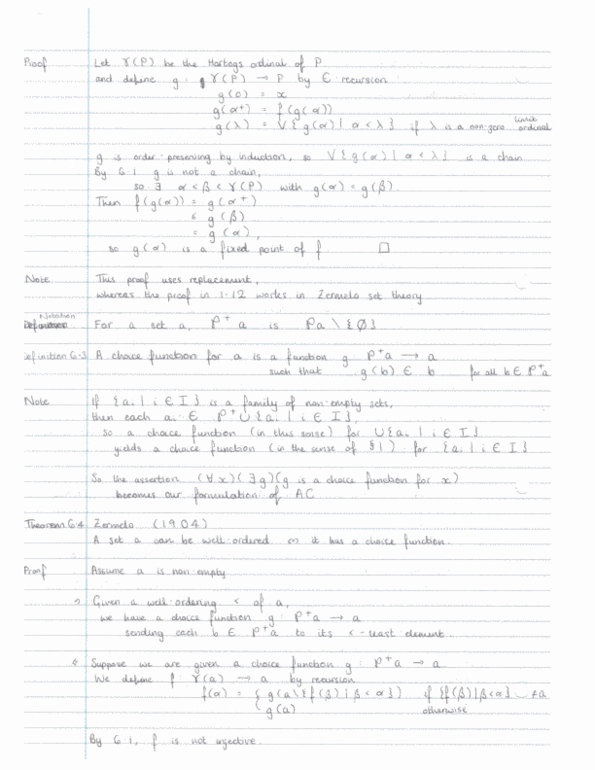 Proof Let γ(P) be the Hartogs ordinal of P
and define g: γ(P) → P by ∈ recursion
g(0) = x
g(α⁺) = f(g(α))
g(λ) = ⋁{g(α) | α < λ} if λ is a non-zero limit ordinal
g is order-preserving by induction, so ⋁{g(α) | α < λ} is a chain
By 6.1 g is not a chain,
so ∃ α < β < γ(P) with g(α) = g(β).
Then f(g(α)) = g(α⁺)
≤ g(β)
= g(α),
so g(α) is a fixed point of f □
Note This proof uses replacement,
whereas the proof in 1.12 works in Zermelo set theory
Notation For a set a, P⁺a is Pa \ {∅}
Definition 6.3 A choice function for a is a function g: P⁺a → a
such that g(b) ∈ b for all b ∈ P⁺a
Note If {aᵢ | i ∈ I} is a family of non-empty sets,
then each aᵢ ∈ P⁺⋃{aᵢ | i ∈ I},
so a choice function (in this sense) for ⋃{aᵢ | i ∈ I}
yields a choice function (in the sense of §1) for {aᵢ | i ∈ I}
So the assertion (∀x)(∃g)(g is a choice function for x)
becomes our formulation of AC
Theorem 6.4 Zermelo (1904)
A set a can be well-ordered ⇔ it has a choice function.
Proof Assume a is non-empty
⇒ Given a well-ordering < of a,
we have a choice function g: P⁺a → a
sending each b ∈ P⁺a to its <-least element.
⇐ Suppose we are given a choice function g: P⁺a → a.
We define f γ(a) → a by recursion
f(α) = { g(a \ {f(β) | β < α}) if {f(β) | β < α} ≠ a
{ g(a) otherwise
By 6.1, f is not injective.